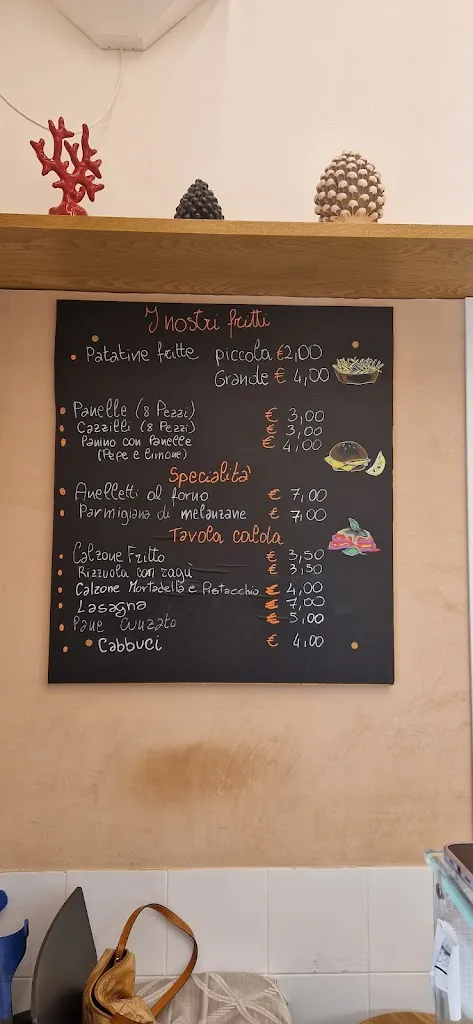 I nostri fritti
Patatine fritte piccola €2,00
Grande € 4,00
Panelle (8 Pezzi) € 3,00
Cazzilli (8 Pezzi) € 3,00
Panino con Panelle € 4,00
(Pepe e limone)
Specialità
Anelletti al forno € 7,00
Parmigiana di melanzane € 7,00
Tavola calda
Calzone Fritto € 3,50
Rizzuola con ragù € 3,50
Calzone Mortadella e Pistacchio € 4,00
Lasagna € 7,00
Pane Cunzato € 5,00
Cabbuci € 4,00